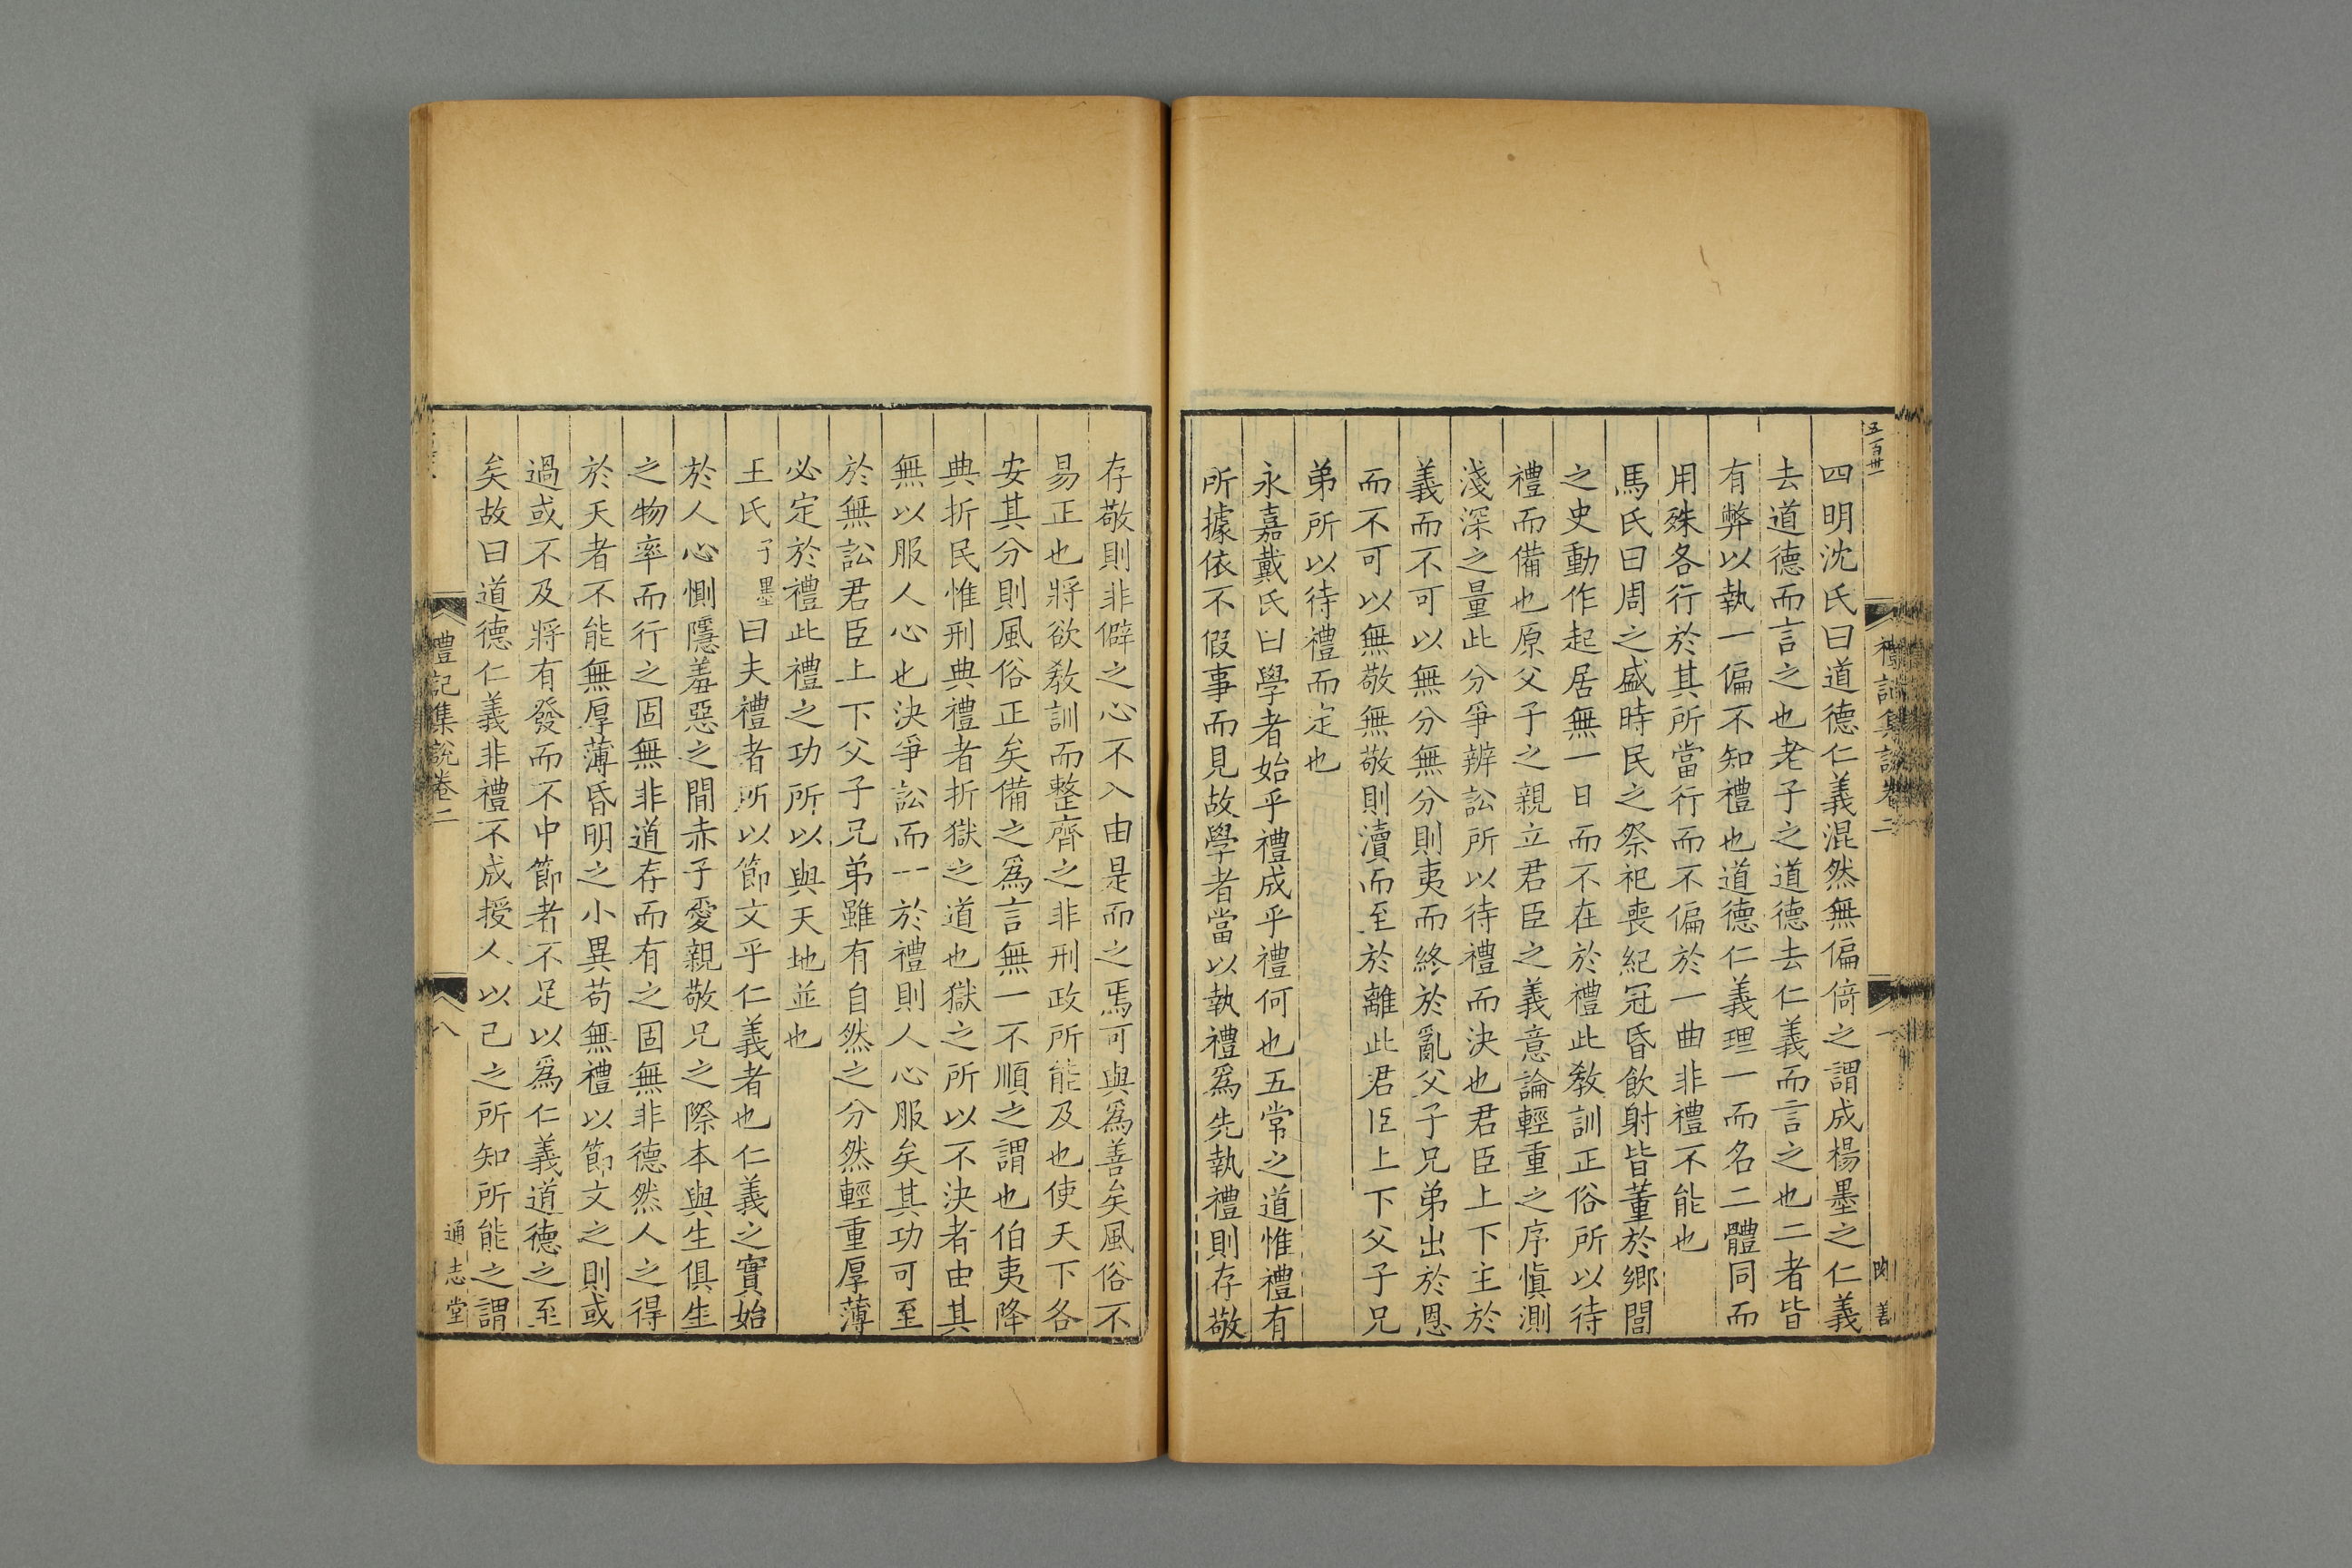 五百卅一
四明沈氏曰道德仁義混然無偏倚之謂成楊墨之仁義
去道德而言之也老子之道德去仁義而言之也二者皆
有弊以執一偏不知禮也道德仁義理一而名二體同而
用殊各行於其所當行而不偏於一曲非禮不能也
馬氏曰周之盛時民之祭祀喪紀冠昏飲射皆董於鄉閭
之史動作起居無一日而不在於禮此敎訓正俗所以待
禮而備也原父子之親立君臣之義意論輕重之序愼測
淺深之量此分爭辨訟所以待禮而決也君臣上下主於
義而不可以無分無分則夷而終於亂父子兄弟出於恩
而不可以無敬無敬則瀆而至於離此君臣上下父子兄
弟所以待禮而定也
永嘉戴氏曰學者始乎禮成乎禮何也五常之道惟禮有
所據依不假事而見故學者當以執禮爲先執禮則存敬
存敬則非僻之心不入由是而之焉可與爲善矣風俗不
易正也將欲敎訓而整齊之非刑政所能及也使天下各
安其分則風俗正矣備之爲言無一不順之謂也伯夷降
典折民惟刑典禮者折獄之道也獄之所以不決者由其
無以服人心也決爭訟而一於禮則人心服矣其功可至
於無訟君臣上下父子兄弟雖有自然之分然輕重厚薄
必定於禮此禮之功所以與天地並也
王氏子墨曰夫禮者所以節文乎仁義者也仁義之實始
於人心惻隱羞惡之間赤子愛親敬兄之際本與生俱生
之物率而行之固無非道存而有之固無非德然人之得
於天者不能無厚薄昏明之小異苟無禮以節文之則或
過或不及將有發而不中節者不足以爲仁義道德之至
矣故曰道德仁義非禮不成授人以己之所知所能之謂
禮記集說卷二
八
通志堂